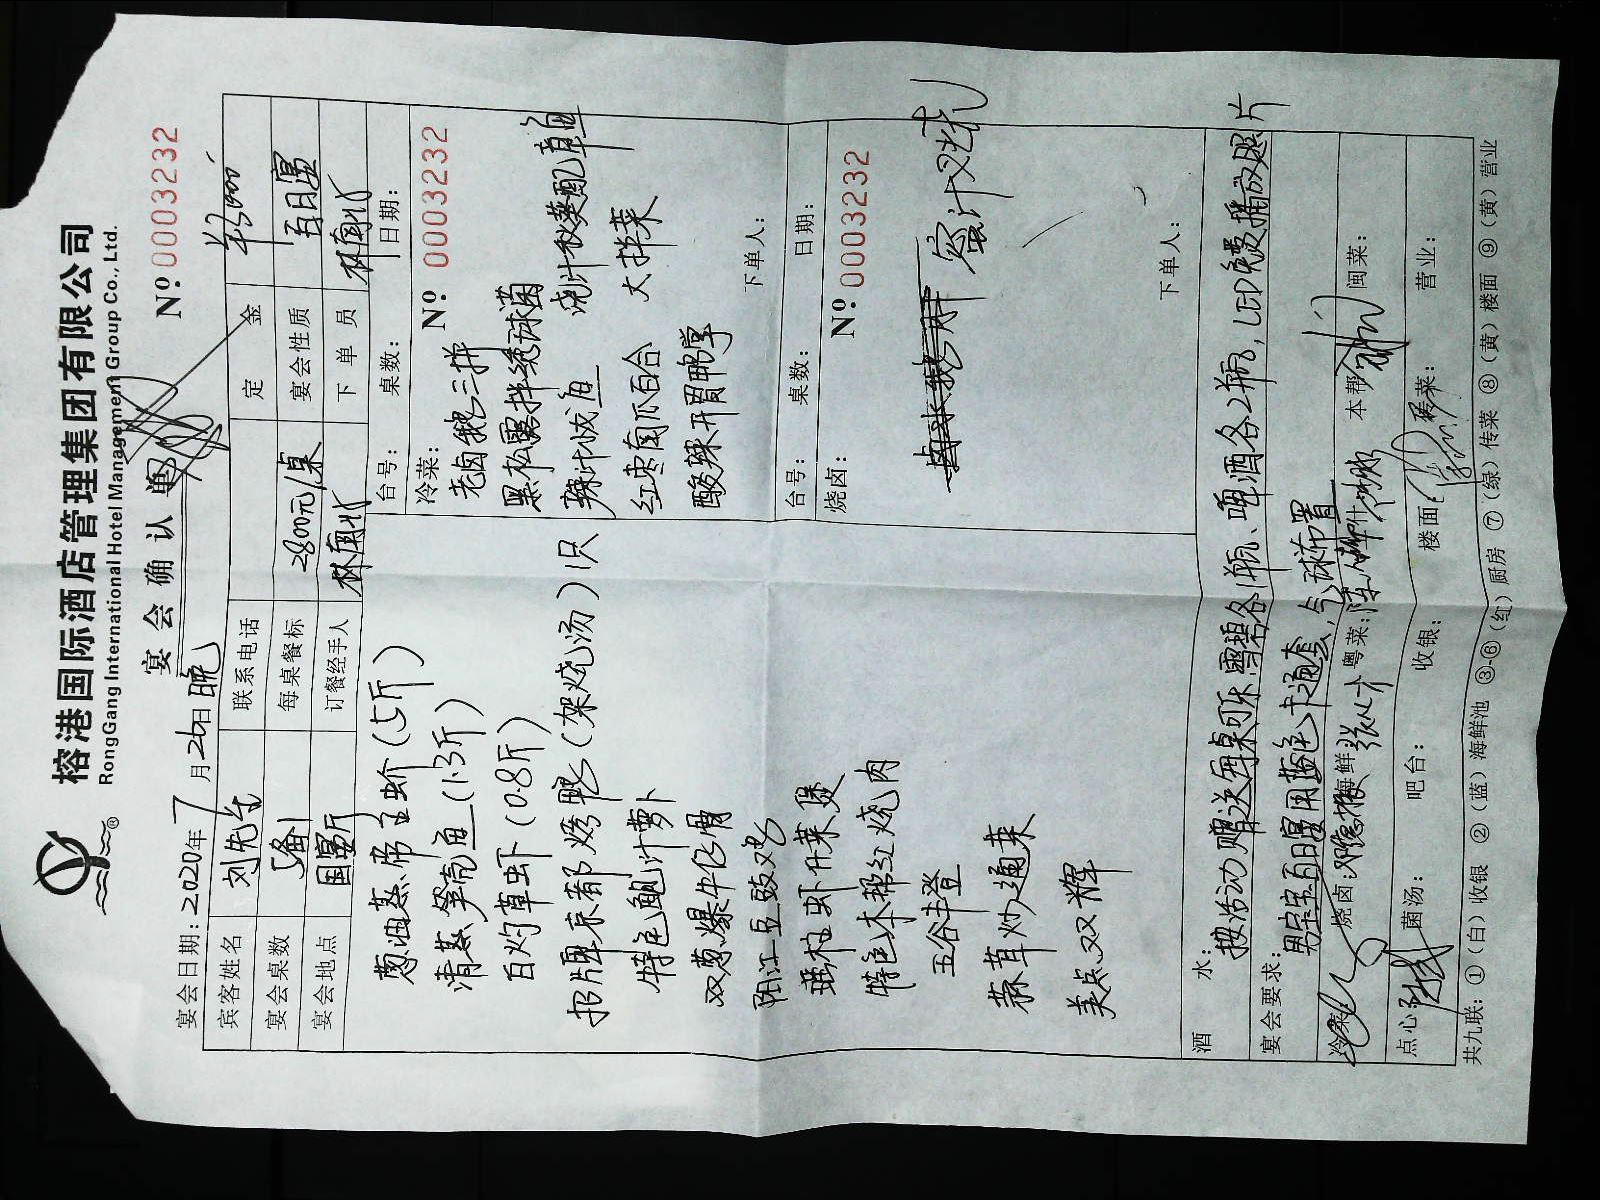 榕港国际酒店管理集团有限公司
RongGang International Hotel Management Group Co., Ltd.
®
宴会确认单
№ 0003232
宴会日期: 2020年7月26日晚
宾客姓名 刘先生 联系电话 定金
宴会桌数 5备1 每桌餐标 2800元/桌 宴会性质 百日宴
宴会地点 国宴厅 订餐经手人 林南北 下单员 林南北
葱油蒸帝王蚧(5斤)
清蒸笋壳鱼(1.3斤)
白灼草虾(0.8斤)
招牌京都烤鸭(架烧汤)1只
特色鲍汁萝卜
双葱爆牛仔骨
阳江豆豉鸡
瑶柱虾什菜煲
特色本帮红烧肉
五谷丰登
蒜茸炒通菜
美点双辉
台号: 桌数: 日期:
冷菜: № 0003232
老卤鹅三拼
黑松露拌绣球菌
辣汁城鱼 捞汁秋葵配章鱼
红枣南瓜百合 大拌菜
酸辣开胃鸭掌
下单人:
台号: 桌数: 日期:
烧卤: № 0003232
蜜汁叉烧
下单人:
酒水: 按活动赠送每桌可乐、雪碧各1瓶、啤酒各2瓶, LED免费播放照片
宴会要求: 男宝宝百日宴用蓝色卡通套, 气球布置
冷菜: 烧卤: 海鲜: 粤菜: 什 本帮: 闽菜:
点心: 菌汤: 吧台: 收银: 楼面: 传菜: 营业:
共九联: ①(白)收银 ②(蓝)海鲜池 ③-⑥(红)厨房 ⑦(绿)传菜 ⑧(黄)楼面 ⑨(黄)营业